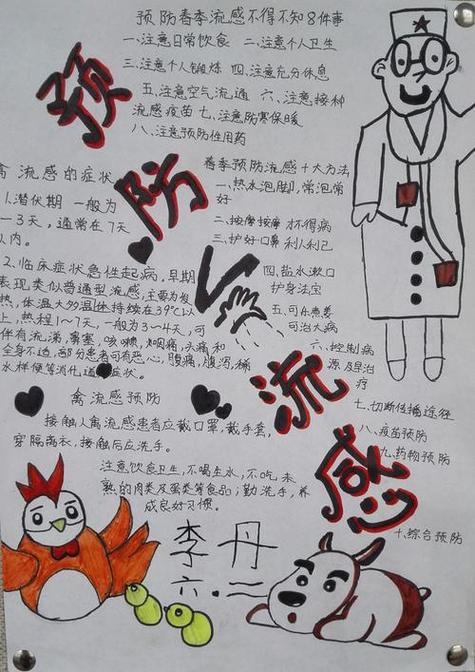 预防春季流感不得不知8件事
一、注意日常饮食 二、注意个人卫生
三、注意个人锻炼 四、注意充分休息
五、注意空气流通 六、注意接种
流感疫苗 七、注意防寒保暖
八、注意预防性用药
预
防
流
感
禽流感的症状
1.潜伏期 一般为
1-3天,通常在7天
以内。
2、临床症状急性起病,早期
表现类似普通型流感,主要为发
热,体温大多温体持续在39℃以
上,热程1~7天,一般为3~4天,可
伴有流涕,鼻塞,咳嗽,咽痛,头痛和
全身不适,部分患者可有恶心,腹痛,腹泻,稀
水样便等消化道症状。
春季预防流感十大方法
一、热水泡脚,常泡常
好
二、按摩按摩 才不得病
三、护好口鼻 利人利己
四、盐水漱口
护身法宝
五、可
可治大病
六、控制病
源 及早治
疗
七、切断传播途径
八、疫苗预防
九、药物预防
十、综合预防
禽流感预防
接触人禽流感患者应戴口罩,戴手套,
穿隔离衣,接触后应洗手。
注意饮食卫生,不喝生水,不吃未
熟的肉类及蛋类等食品;勤洗手,养
成良好习惯。
李丹
六.二